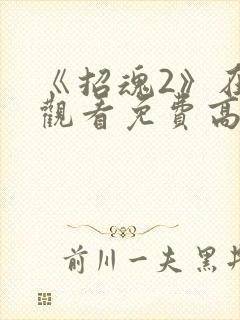 《招魂2》在
觀看免費高
前川一夫 黑